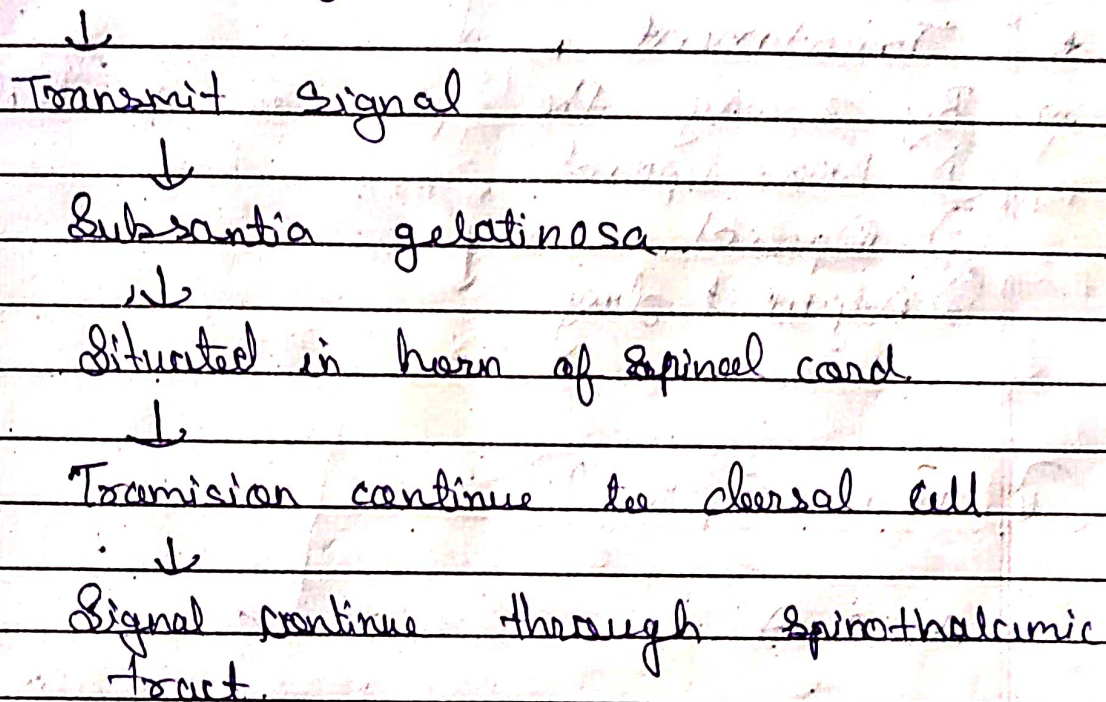 ↓
Transmit signal
↓
Subsantia gelatinosa
↓
Situated in horn of spineel cord.
↓
Tramision continue too doersal cell
↓
Signal continue through spinothalamic
tract.